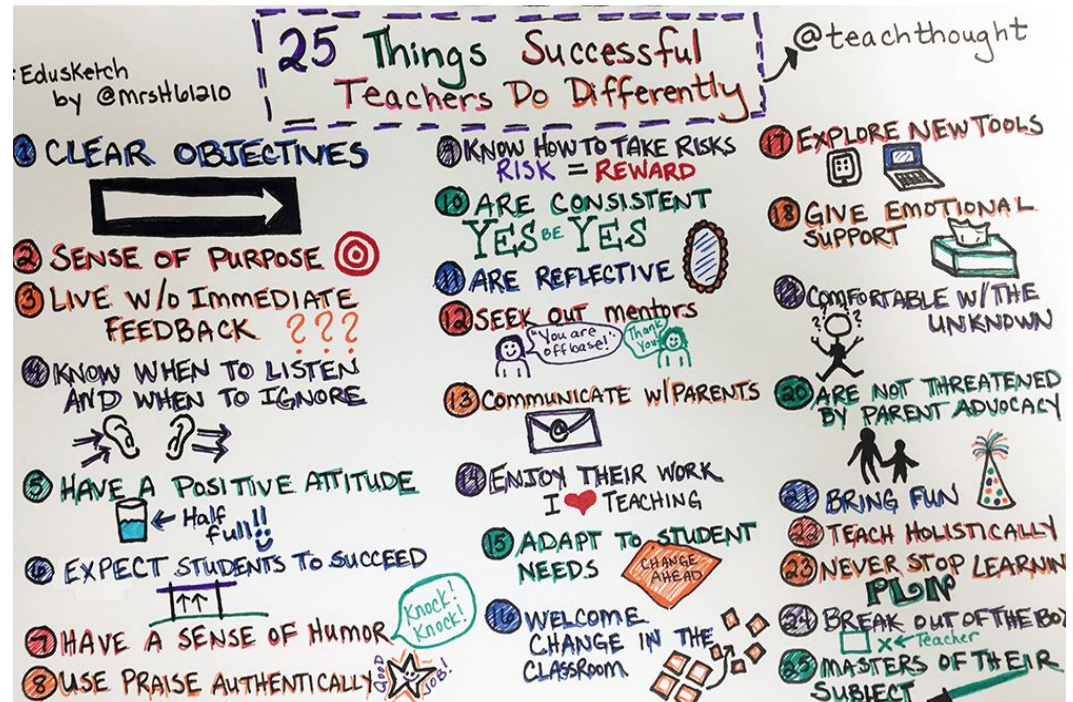 25 Things Successful
Teachers Do Differently
@teachthought
Edusketch
by @mrsH61210
1 CLEAR OBJECTIVES
2 SENSE OF PURPOSE
3 LIVE W/o Immediate
FEEDBACK ???
4 KNOW WHEN TO LISTEN
AND WHEN TO IGNORE
5 HAVE A POSITIVE ATTITUDE
← Half
full!!
6 EXPECT STUDENTS TO SUCCEED
7 HAVE A SENSE OF HUMOR
Knock!
Knock!
8 USE PRAISE AUTHENTICALLY
GOOD
JOB!
9 KNOW HOW TO TAKE RISKS
RISK = REWARD
10 ARE CONSISTENT
YES BE YES
11 ARE REFLECTIVE
12 SEEK OUT mentors
"You are
off base!"
Thank
You!
13 Communicate w/PARENTS
@
14 ENJOY THEIR WORK
I ❤ TEACHING
15 ADAPT TO STUDENT
NEEDS
CHANGE
AHEAD
16 WELCOME
CHANGE IN THE
CLASSROOM
17 EXPLORE NEW TOOLS
18 GIVE EMOTIONAL
SUPPORT
19 COMFORTABLE W/THE
UNKNOWN
? ?
20 ARE NOT THREATENED
BY PARENT ADVOCACY
21 BRING FUN
22 TEACH HOLISTICALLY
23 NEVER STOP LEARNIN
PLN
24 BREAK OUT OF THE BOX
x ← Teacher
25 MASTERS OF THEIR
SUBJECT